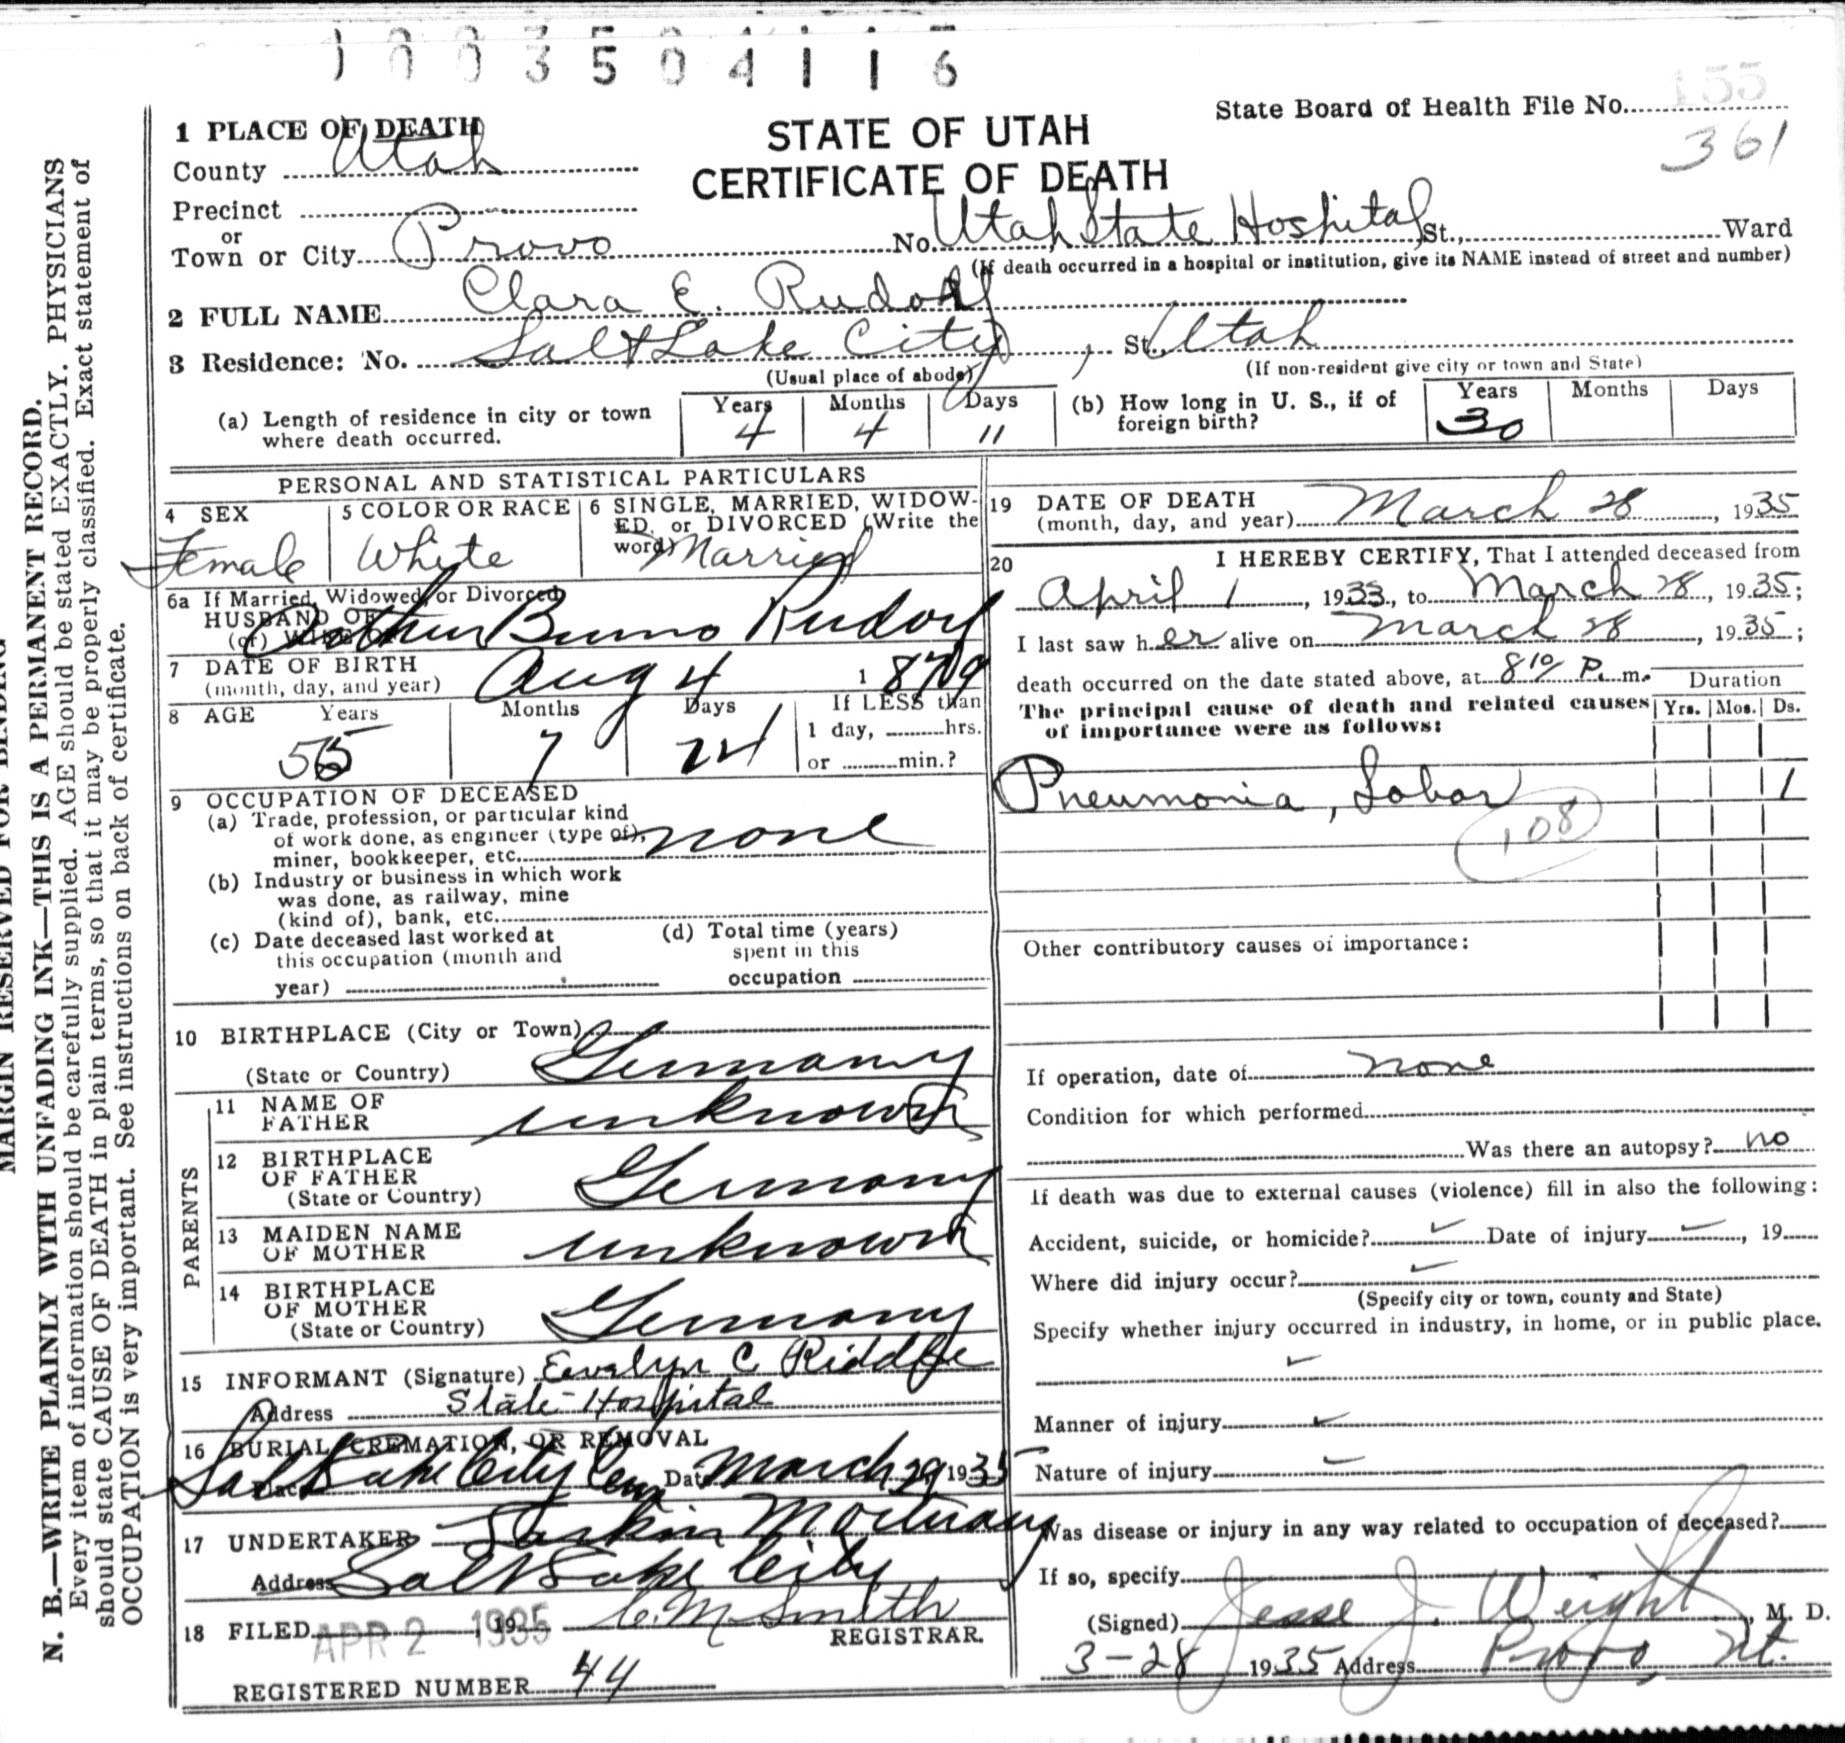 1003504116
State Board of Health File No. 155
361
STATE OF UTAH
CERTIFICATE OF DEATH
1 PLACE OF DEATH
County Utah
Precinct
or
Town or City Provo No. Utah State Hospital St., Ward
(If death occurred in a hospital or institution, give its NAME instead of street and number)
2 FULL NAME Clara E. Rudolf
3 Residence: No. Salt Lake City, St. Utah
(Usual place of abode) (If non-resident give city or town and State)
(a) Length of residence in city or town where death occurred. Years 4 Months 4 Days 11
(b) How long in U. S., if of foreign birth? Years 30 Months Days
PERSONAL AND STATISTICAL PARTICULARS
4 SEX
Female
5 COLOR OR RACE
White
6 SINGLE, MARRIED, WIDOW-
ED, or DIVORCED (Write the
word) Married
6a If Married, Widowed, or Divorced
HUSBAND OF
(or) WIFE OF Arthur Bruno Rudolf
7 DATE OF BIRTH
(month, day, and year) Aug 4 1879
8 AGE Years Months Days If LESS than
55 7 24 1 day, hrs.
or min.?
9 OCCUPATION OF DECEASED
(a) Trade, profession, or particular kind
of work done, as engineer (type of),
miner, bookkeeper, etc. none
(b) Industry or business in which work
was done, as railway, mine
(kind of), bank, etc.
(c) Date deceased last worked at
this occupation (month and
year)
(d) Total time (years)
spent in this
occupation
10 BIRTHPLACE (City or Town)
(State or Country) Germany
PARENTS
11 NAME OF
FATHER unknown
12 BIRTHPLACE
OF FATHER
(State or Country) Germany
13 MAIDEN NAME
OF MOTHER unknown
14 BIRTHPLACE
OF MOTHER
(State or Country) Germany
15 INFORMANT (Signature) Evalyn C Riddle
Address State Hospital
16 BURIAL, CREMATION, OR REMOVAL
Place Salt Lake City Cem Date March 29 1935
17 UNDERTAKER Larkin Mortuary
Address Salt Lake City
18 FILED APR 2 1935 , 19 C. M Smith
REGISTRAR.
REGISTERED NUMBER 44
19 DATE OF DEATH
(month, day, and year) March 28, 1935
20 I HEREBY CERTIFY, That I attended deceased from
April 1, 1933, to March 28, 1935;
I last saw her alive on March 28, 1935;
death occurred on the date stated above, at 8 10/ P. m.
The principal cause of death and related causes
of importance were as follows:
Duration
Yrs. Mos. Ds.
Pneumonia, Lobar 1
108
Other contributory causes of importance:
If operation, date of none
Condition for which performed
Was there an autopsy? no
If death was due to external causes (violence) fill in also the following:
Accident, suicide, or homicide? ✓ Date of injury ✓, 19
Where did injury occur? ✓
(Specify city or town, county and State)
Specify whether injury occurred in industry, in home, or in public place.
✓
Manner of injury ✓
Nature of injury ✓
Was disease or injury in any way related to occupation of deceased?
If so, specify
(Signed) Jesse J. Weight, M. D.
3-28 1935 Address Provo, Ut.
MARGIN RESERVED FOR BINDING
N. B.—WRITE PLAINLY WITH UNFADING INK—THIS IS A PERMANENT RECORD.
Every item of information should be carefully supplied. AGE should be stated EXACTLY. PHYSICIANS
should state CAUSE OF DEATH in plain terms, so that it may be properly classified. Exact statement of
OCCUPATION is very important. See instructions on back of certificate.